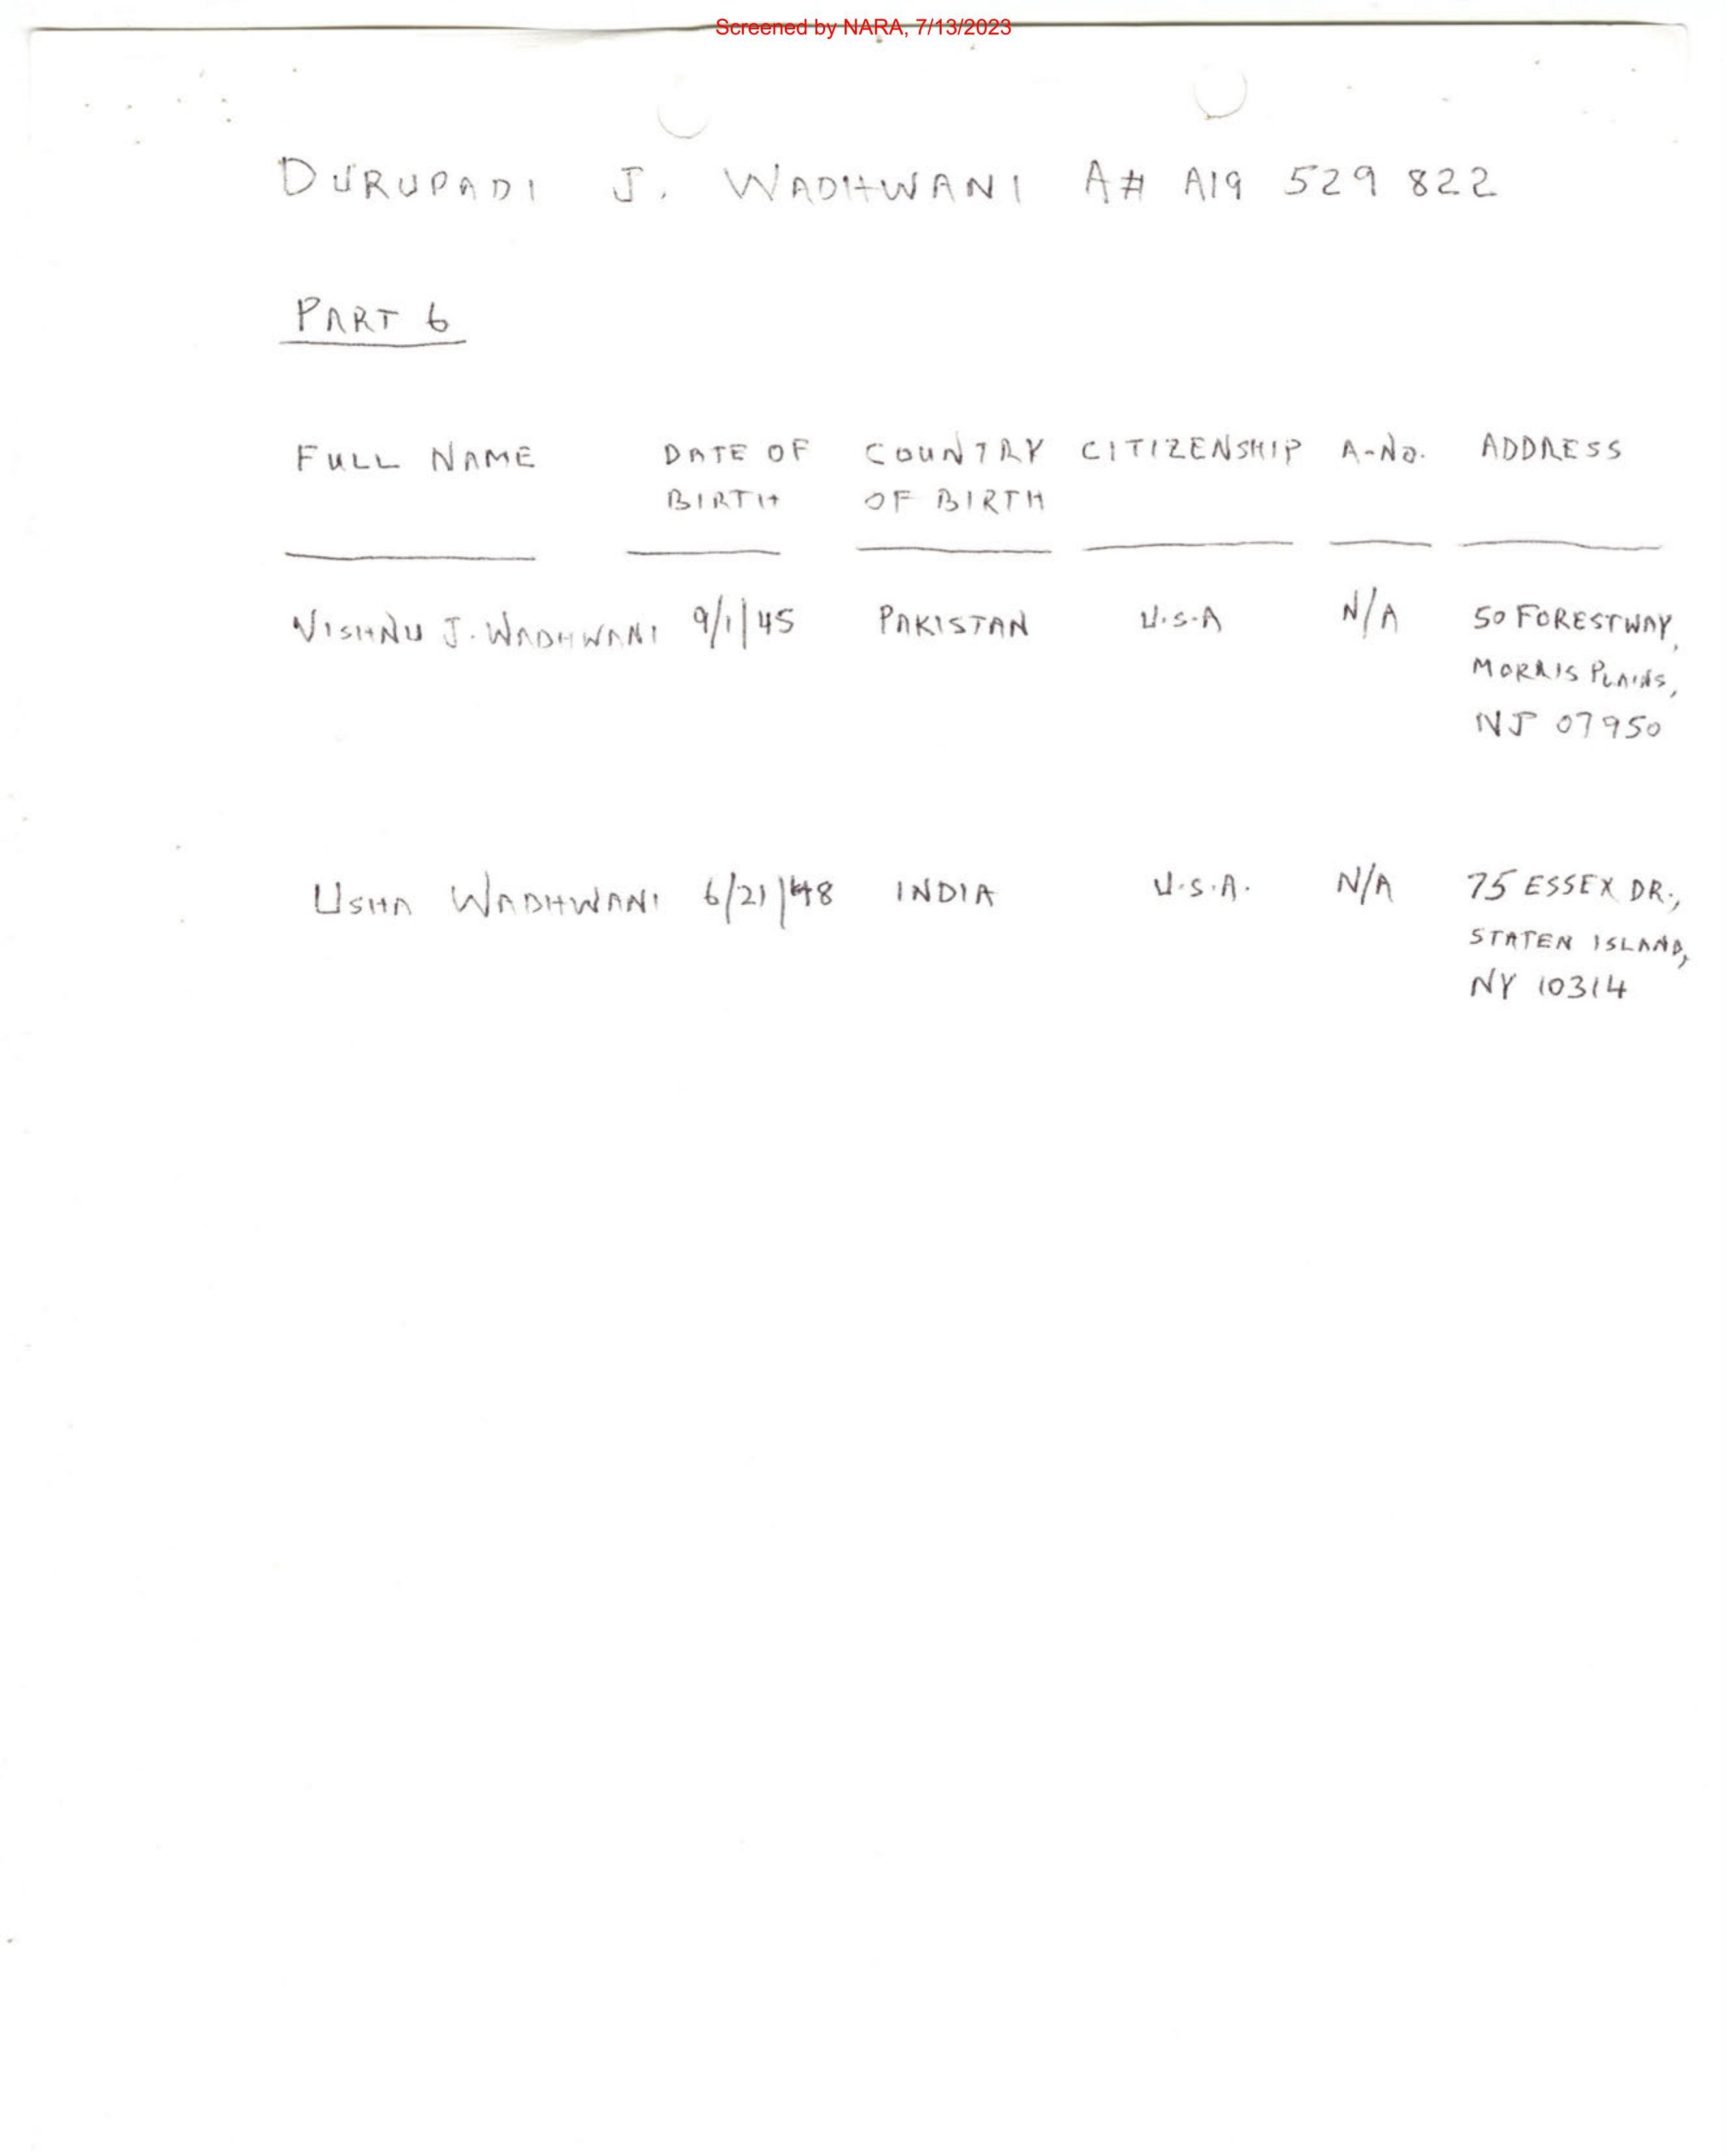 Screened by NARA, 7/13/2023
DURUPADI J. WADHWANI A# A19 529 822
PART 6
FULL NAME DATE OF COUNTRY CITIZENSHIP A-NO. ADDRESS
BIRTH OF BIRTH
VISHNU J. WADHWANI 9/1/45 PAKISTAN U.S.A N/A 50 FORESTWAY,
MORRIS PLAINS,
NJ 07950
USHA WADHWANI 6/21/48 INDIA U.S.A. N/A 75 ESSEX DR.,
STATEN ISLAND,
NY 10314